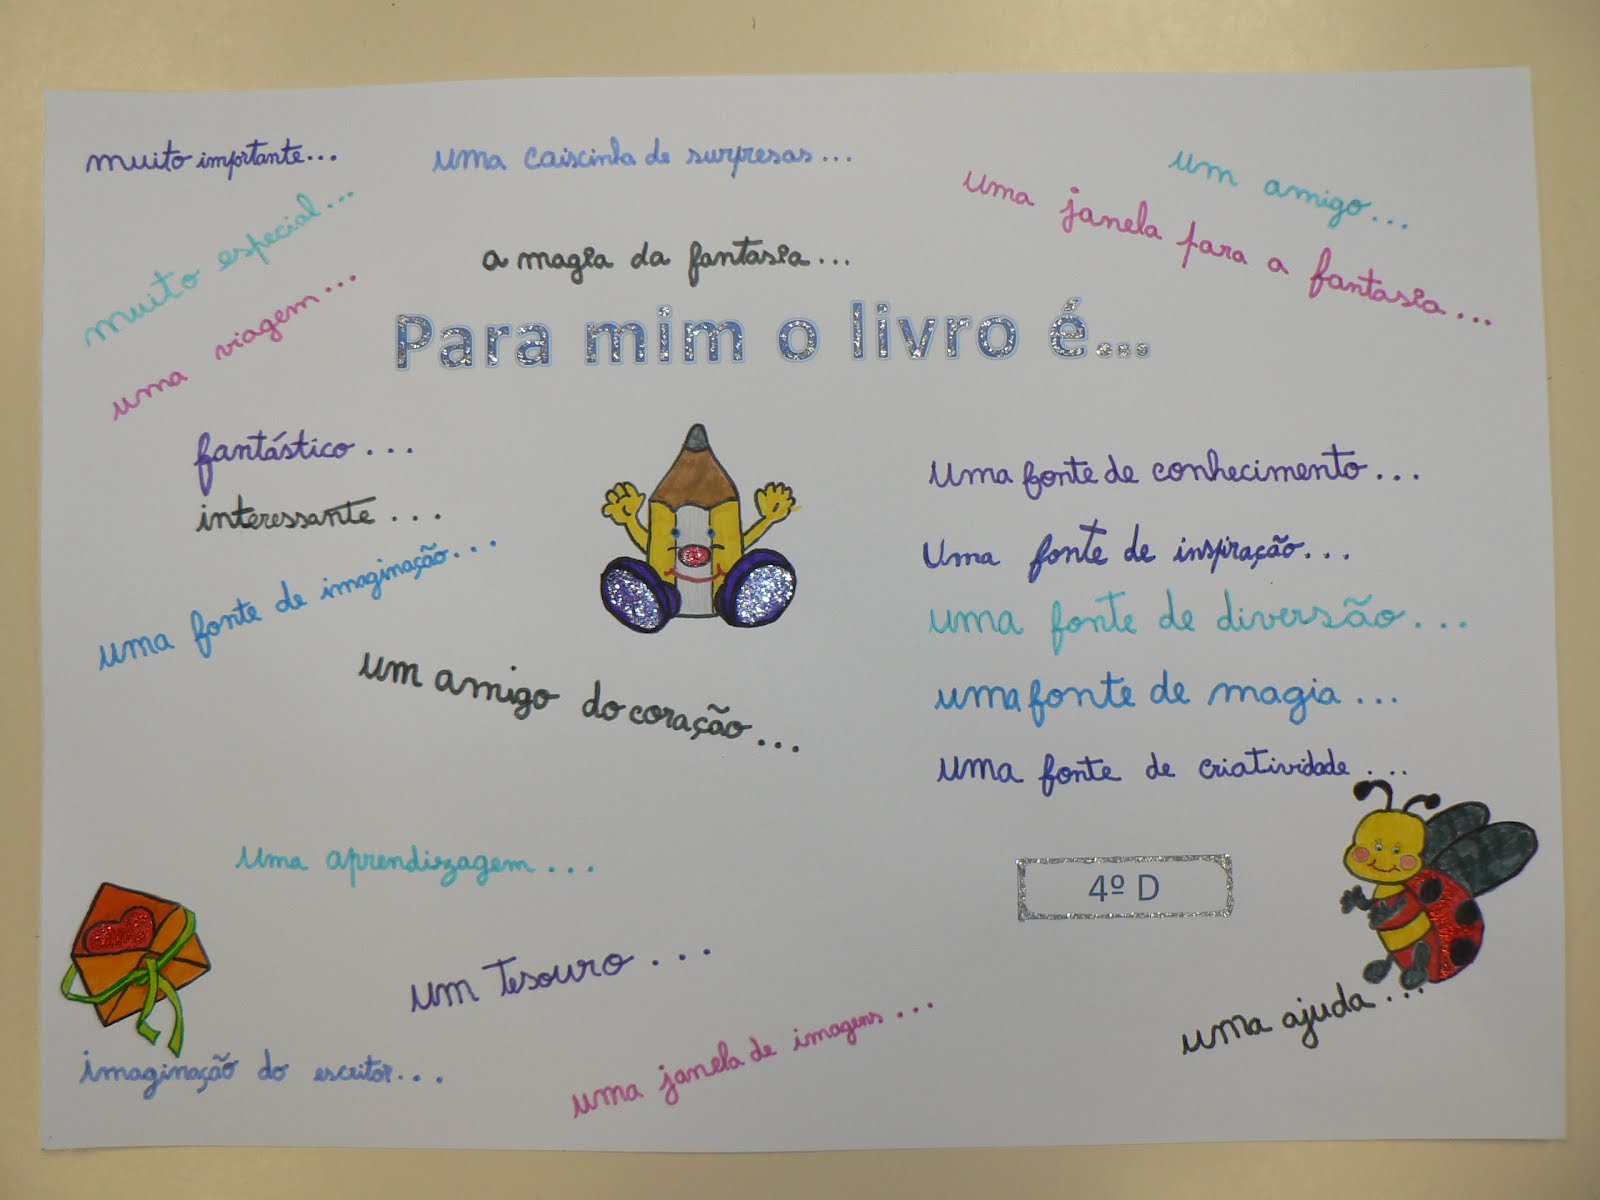 muito importante...
uma caiscinha de surpresas...
um amigo...
muito especial...
uma janela para a fantasia...
a magia da fantasia...
uma viagem...
Para mim o livro é...
fantástico...
interessante...
uma fonte de imaginação...
um amigo do coração...
Uma fonte de conhecimento...
Uma fonte de inspiração...
uma fonte de diversão...
uma fonte de magia...
uma fonte de criatividade...
uma aprendizagem...
4º D
um tesouro...
uma ajuda...
imaginação do escritor...
uma janela de imagens...